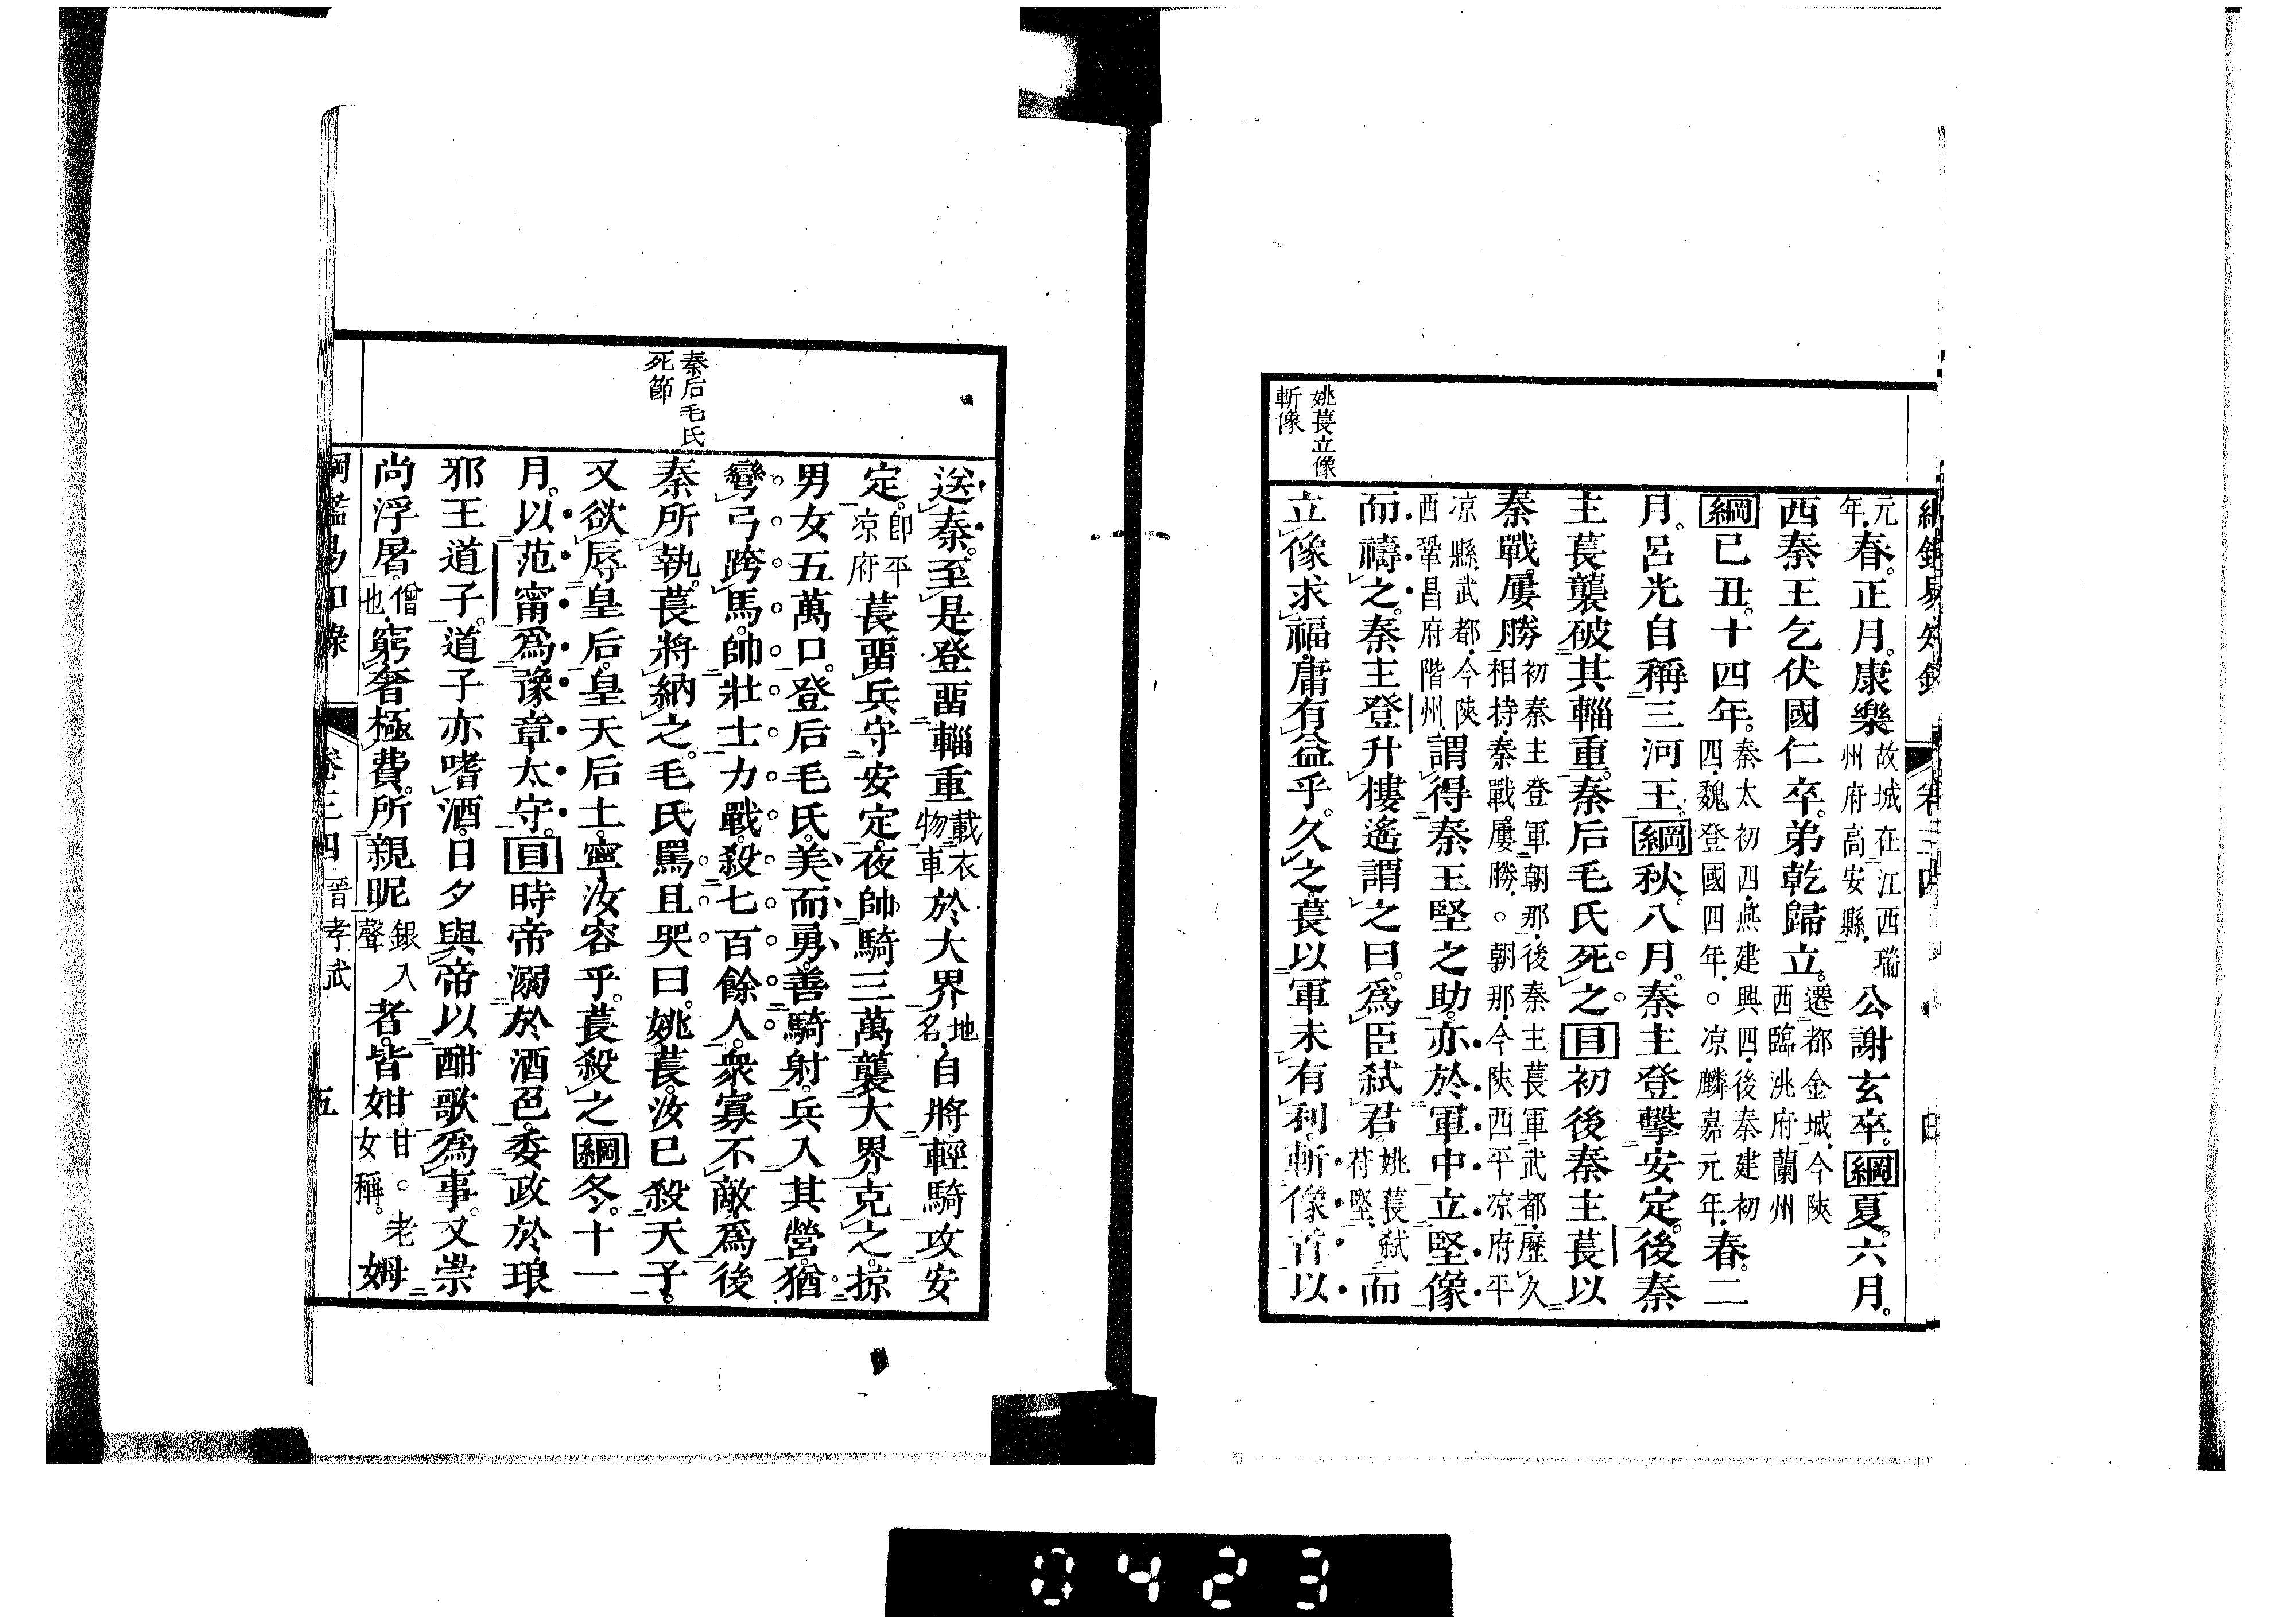 綱鑑易知錄 卷三四 四
元年春正月康樂故城在江西瑞州府高安縣公謝玄卒。綱夏六月。
西秦王乞伏國仁卒。弟乾歸立。遷都金城今陝西臨洮府蘭州
綱己丑。十四年。秦太初四燕建興四後秦建初四魏登國四年。○凉麟嘉元年春。二
月。呂光自稱三河王。綱秋八月。秦主登擊安定。後秦
主萇襲破其輜重。秦后毛氏死之。目初後秦主萇以
秦戰屢勝初秦主登軍朝那後秦主萇軍武都歷久相持秦戰屢勝○朝那今陝西平凉府平
凉縣武都今陝西鞏昌府階州謂得秦王堅之助亦於軍中立堅像
而禱之。秦主登升樓遙謂之曰。爲臣弑君。姚萇弑苻堅而
立像求福。庸有益乎。久之。萇以軍未有利。斬像首以
姚萇立像
斬像
送秦。至是登畱輜重載衣物車於大界地名自將輕騎攻安
定。卽平凉府萇畱兵守安定。夜帥騎三萬襲大界。克之。掠
男女五萬口。登后毛氏。美而勇。善騎射。兵入其營。猶
彎弓跨馬。帥壯士力戰。殺七百餘人。衆寡不敵。爲後
秦所執。萇將納之。毛氏罵且哭曰。姚萇。汝已殺天子。
又欲辱皇后。皇天后土。寧汝容乎。萇殺之 綱冬。十一
月。以范甯爲豫章太守。目時帝溺於酒色。委政於琅
邪王道子。道子亦嗜酒。日夕與帝以酣歌爲事。又崇
尚浮屠。僧也窮奢極費。所親昵銀入聲者。皆姏甘○老女稱。姆
秦后毛氏
死節
綱鑑易知錄 卷三四 晉孝武 五
0423